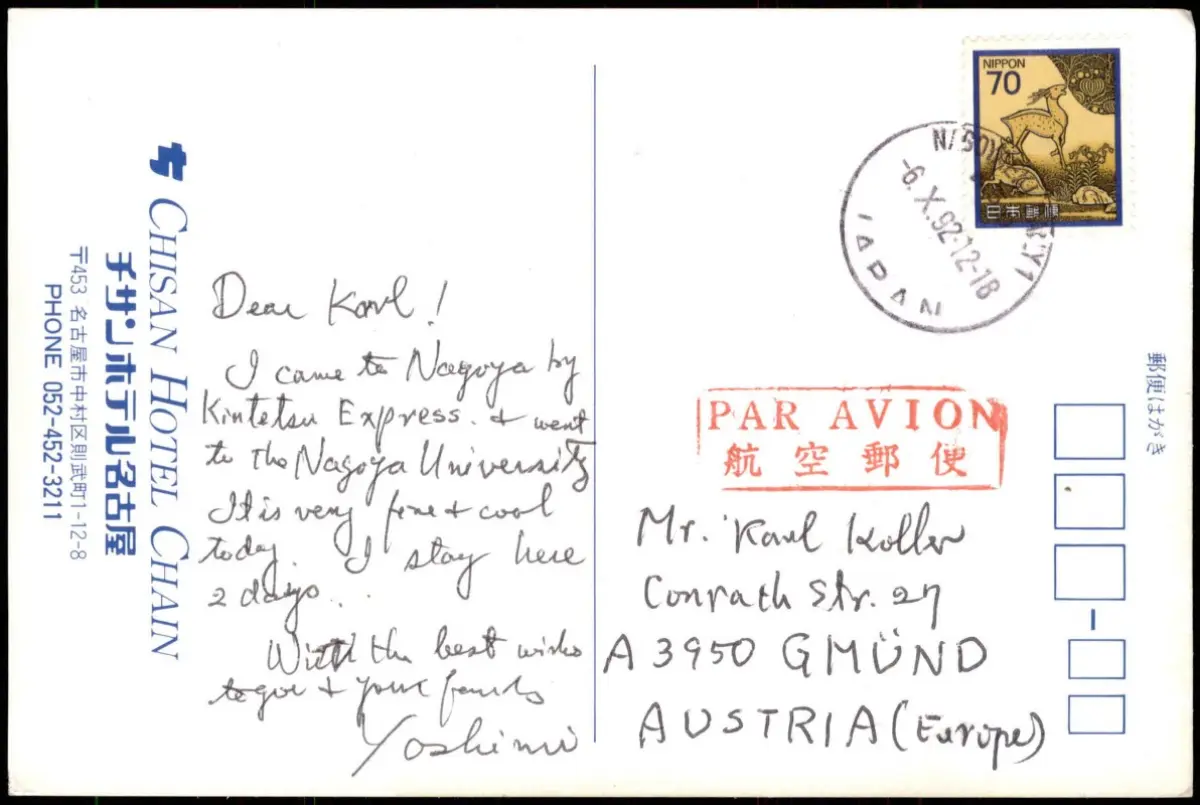 CHISAN HOTEL CHAIN
チサンホテル名古屋
〒453 名古屋市中村区則武町1-12-8
PHONE 052-452-3211
Dear Karl!
I came to Nagoya by
Kintetsu Express. & went
to the Nagoya University
It is very fine & cool
today. I stay here
2 days..
With the best wishes
to you & your family
Yoshimi
NIPPON
70
日本郵便
-6.X.92.12-18
JAPAN
郵便はがき
PAR AVION
航空郵便
Mr. Karl Koller
Conrath Str. 27
A 3950 GMÜND
AUSTRIA (Europe)